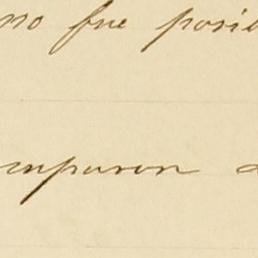 no fue posib
mparon